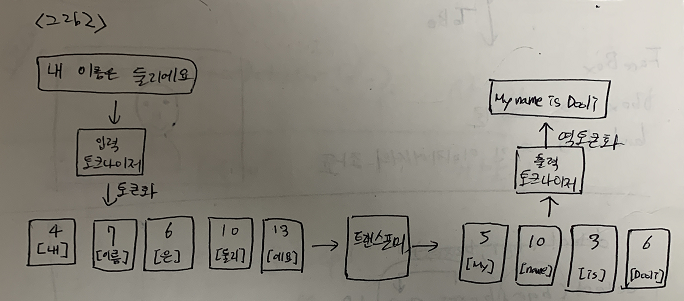 <그림2>
내 이름은 둘리에요
입력
토크나이저
토큰화
4
[내]
7
[이름]
6
[은]
10
[둘리]
13
[에요]
트랜스포머
5
[My]
10
[name]
3
[is]
6
[Dooli]
출력
토크나이저
역토큰화
My name is Dooli